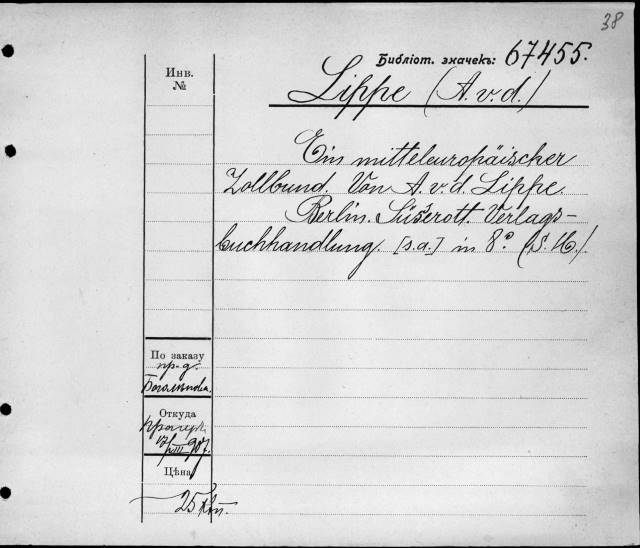 38
Библіот. значекъ: 67455.
Инв.
№
Lippe (A.v.d.)
Ein mitteleuropäischer
Zollbund. Von A.v.d. Lippe.
Berlin. Süsserott. Verlags-
buchhandlung. [s.a.] in 8° (S.
По заказу
пр-д.
Боголѣпова.
Откуда
907.
Цѣна
25